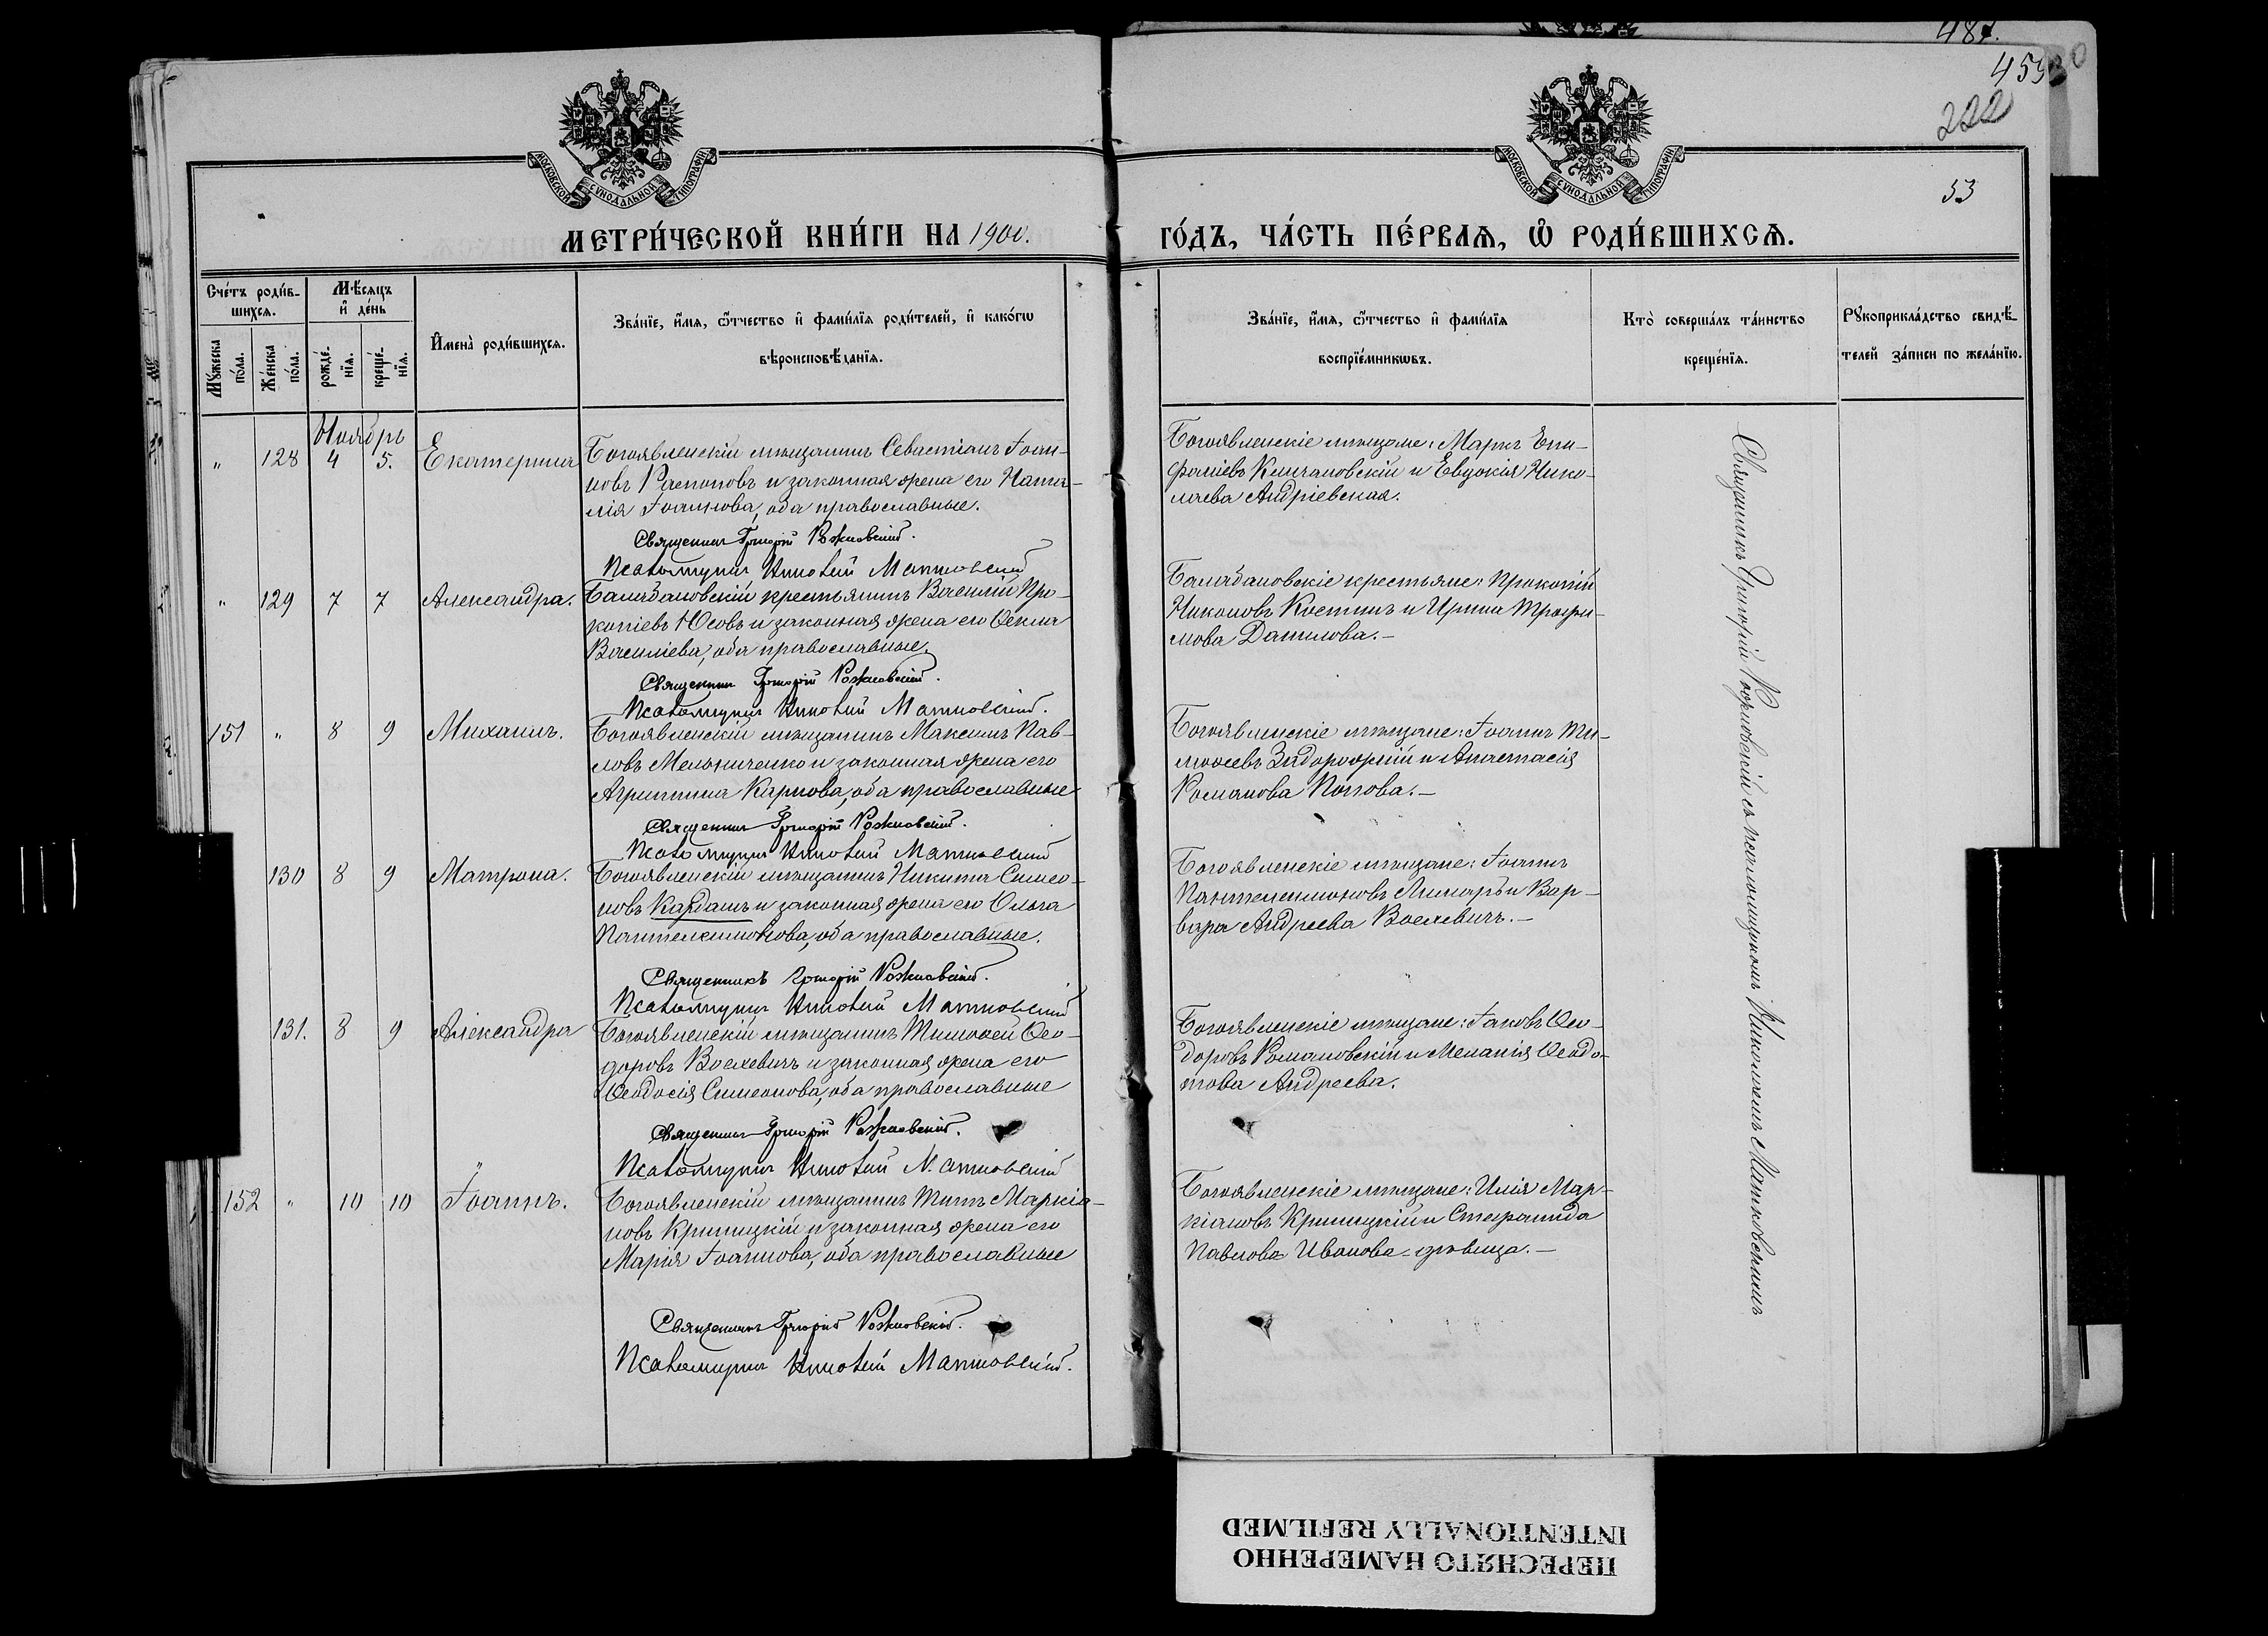 487.
459
222
53
МОСКОВСКОЙ СѴНОДАЛЬНОЙ ТИПОГРАФІИ
МОСКОВСКОЙ СѴНОДАЛЬНОЙ ТИПОГРАФІИ
МЕТРИ́ЧЕСКОЙ КНИ́ГИ НА 1900. ГО́ДЪ, ЧА́СТЬ ПЕ́РВАѦ, Ѡ РОДИ́ВШИХСѦ.
Сче́тъ роди́в-
шихсѧ.
Мѣ́сѧцъ
и҆ де́нь
Мꙋ́жеска по́ла.
Же́нска по́ла.
рожде́-
нїѧ.
креще́-
нїѧ.
И҆мена̀ роди́вшихсѧ.
Зва́нїе, и҆́мѧ, ѻ҆́тчество и҆ фами́лїѧ роди́телей, и҆ како́гѡ
вѣроисповѣ́данїѧ.
Зва́нїе, и҆́мѧ, ѻ҆́тчество и҆ фами́лїѧ
воспрїе́мникѡвъ.
Кто̀ соверша́лъ та́инство
креще́нїѧ.
Рꙋкоприкла́дство свидѣ́-
телей за́писи по жела́нїю.
Ноябрь
" 128 4 5. Екатерина
Богоявленскій мѣщанинъ Севастіанъ Іоан-
новъ Распоповъ и законная жена его Ната-
лія Іоаннова, оба православные.
Священникъ Григорій Рожковскій.
Псаломщикъ Николай Матковскій
Богоявленскіе мѣщане: Маркъ Епи-
фаніевъ и Евдокія Нико-
лаева Андріевская.
" 129 7 7 Александра.
Балабановскій крестьянинъ Василій Про-
копіевъ Юсовъ и законная жена его Ѳекла
Василіева, оба православные.
Священникъ Григорій Рожковскій.
Псаломщикъ Николай Матковскій.
Балабановскіе крестьяне: Прокопій
Никоновъ Костинъ и Ирина Трофи-
мова Данилова.-
151 " 8 9 Михаилъ.
Богоявленскій мѣщанинъ Максимъ Пав-
ловъ Мельниченко и законная жена его
Агриппина Карпова, оба православные
Священникъ Григорій Рожковскій.
Псаломщикъ Николай Матковскій
Богоявленскіе мѣщане: Іоаннъ Ти-
моѳеевъ Задорожній и Анастасія
Романова Попова.-
130 8 9 Матрона.
Богоявленскій мѣщанинъ Никита Симео-
новъ Кардашъ и законная жена его Ольга
Пантелеимонова, оба православные.
Священникъ Григорій Рожковскій.
Псаломщикъ Николай Матковскій
Богоявленскіе мѣщане: Іоаннъ
Пантелеимоновъ Лимарь и Вар-
вара Андреева Воевичъ.-
131. 8 9 Александра
Богоявленскій мѣщанинъ Тимоѳей Ѳео-
доровъ Воевичъ и законная жена его
Ѳеодосія Симеонова, оба православные
Священникъ Григорій Рожковскій.
Псаломщикъ Николай Матковскій
Богоявленскіе мѣщане: Іаковъ Ѳео-
доровъ Романовскій и Меланія Ѳеодо-
това Андреева.
152 " 10 10 Іоаннъ.
Богоявленскій мѣщанинъ Титъ Маркіа-
новъ Криницкій и законная жена его
Марія Іоаннова, оба православные
Священникъ Григорій Рожковскій.
Псаломщикъ Николай Матковскій.
Богоявленскіе мѣщане: Илія Мар-
кіановъ Криницкій и Стефанида
Павлова Иванова-дѣвица.-
Священникъ Григорій Рожковскій съ псаломщикомъ Николаемъ Матковскимъ
ПЕРЕСНЯТО НАМЕРЕННО
INTENTIONALLY REFILMED